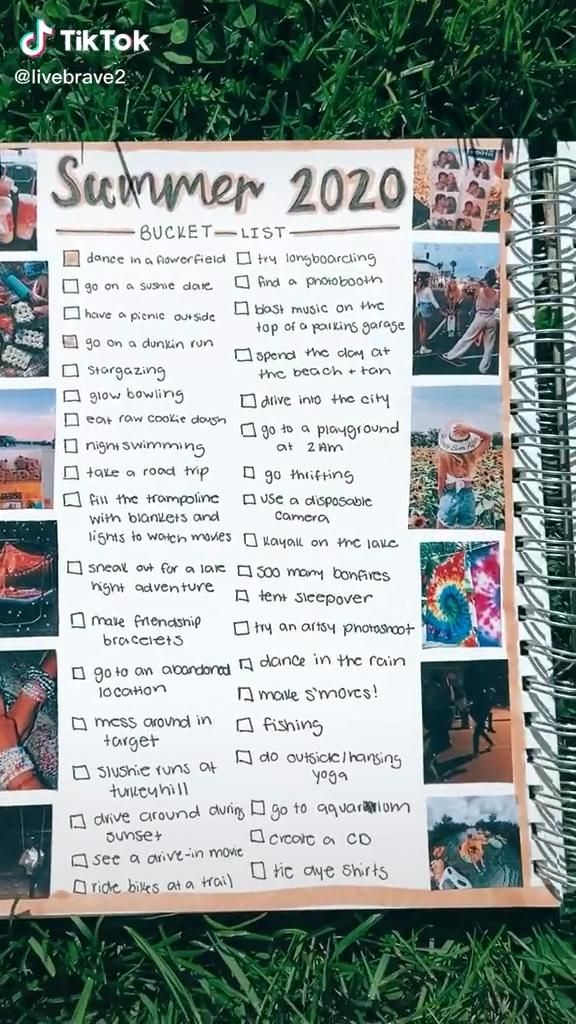 TikTok
@livebrave2
Summer 2020
BUCKET LIST
dance in a flowerfield
go on a sushie date
have a picnic outside
go on a dunkin run
stargazing
glow bowling
eat raw cookie dough
night swimming
take a road trip
fill the trampoline
with blankets and
lights to watch movies
sneak out for a late
night adventure
make friendship
bracelets
go to an abandoned
location
mess around in
target
slushie runs at
turkeyhill
drive around during
sunset
see a drive-in movie
ride bikes at a trail
try longboarding
find a photobooth
blast music on the
top of a parking garage
spend the day at
the beach + tan
drive into the city
go to a playground
at 2AM
go thrifting
use a disposable
camera
kayak on the lake
soo many bonfires
tent sleepover
try an artsy photoshoot
dance in the rain
make s'mores!
fishing
do outside/hanging
yoga
go to aquarium
create a CD
tie dye shirts